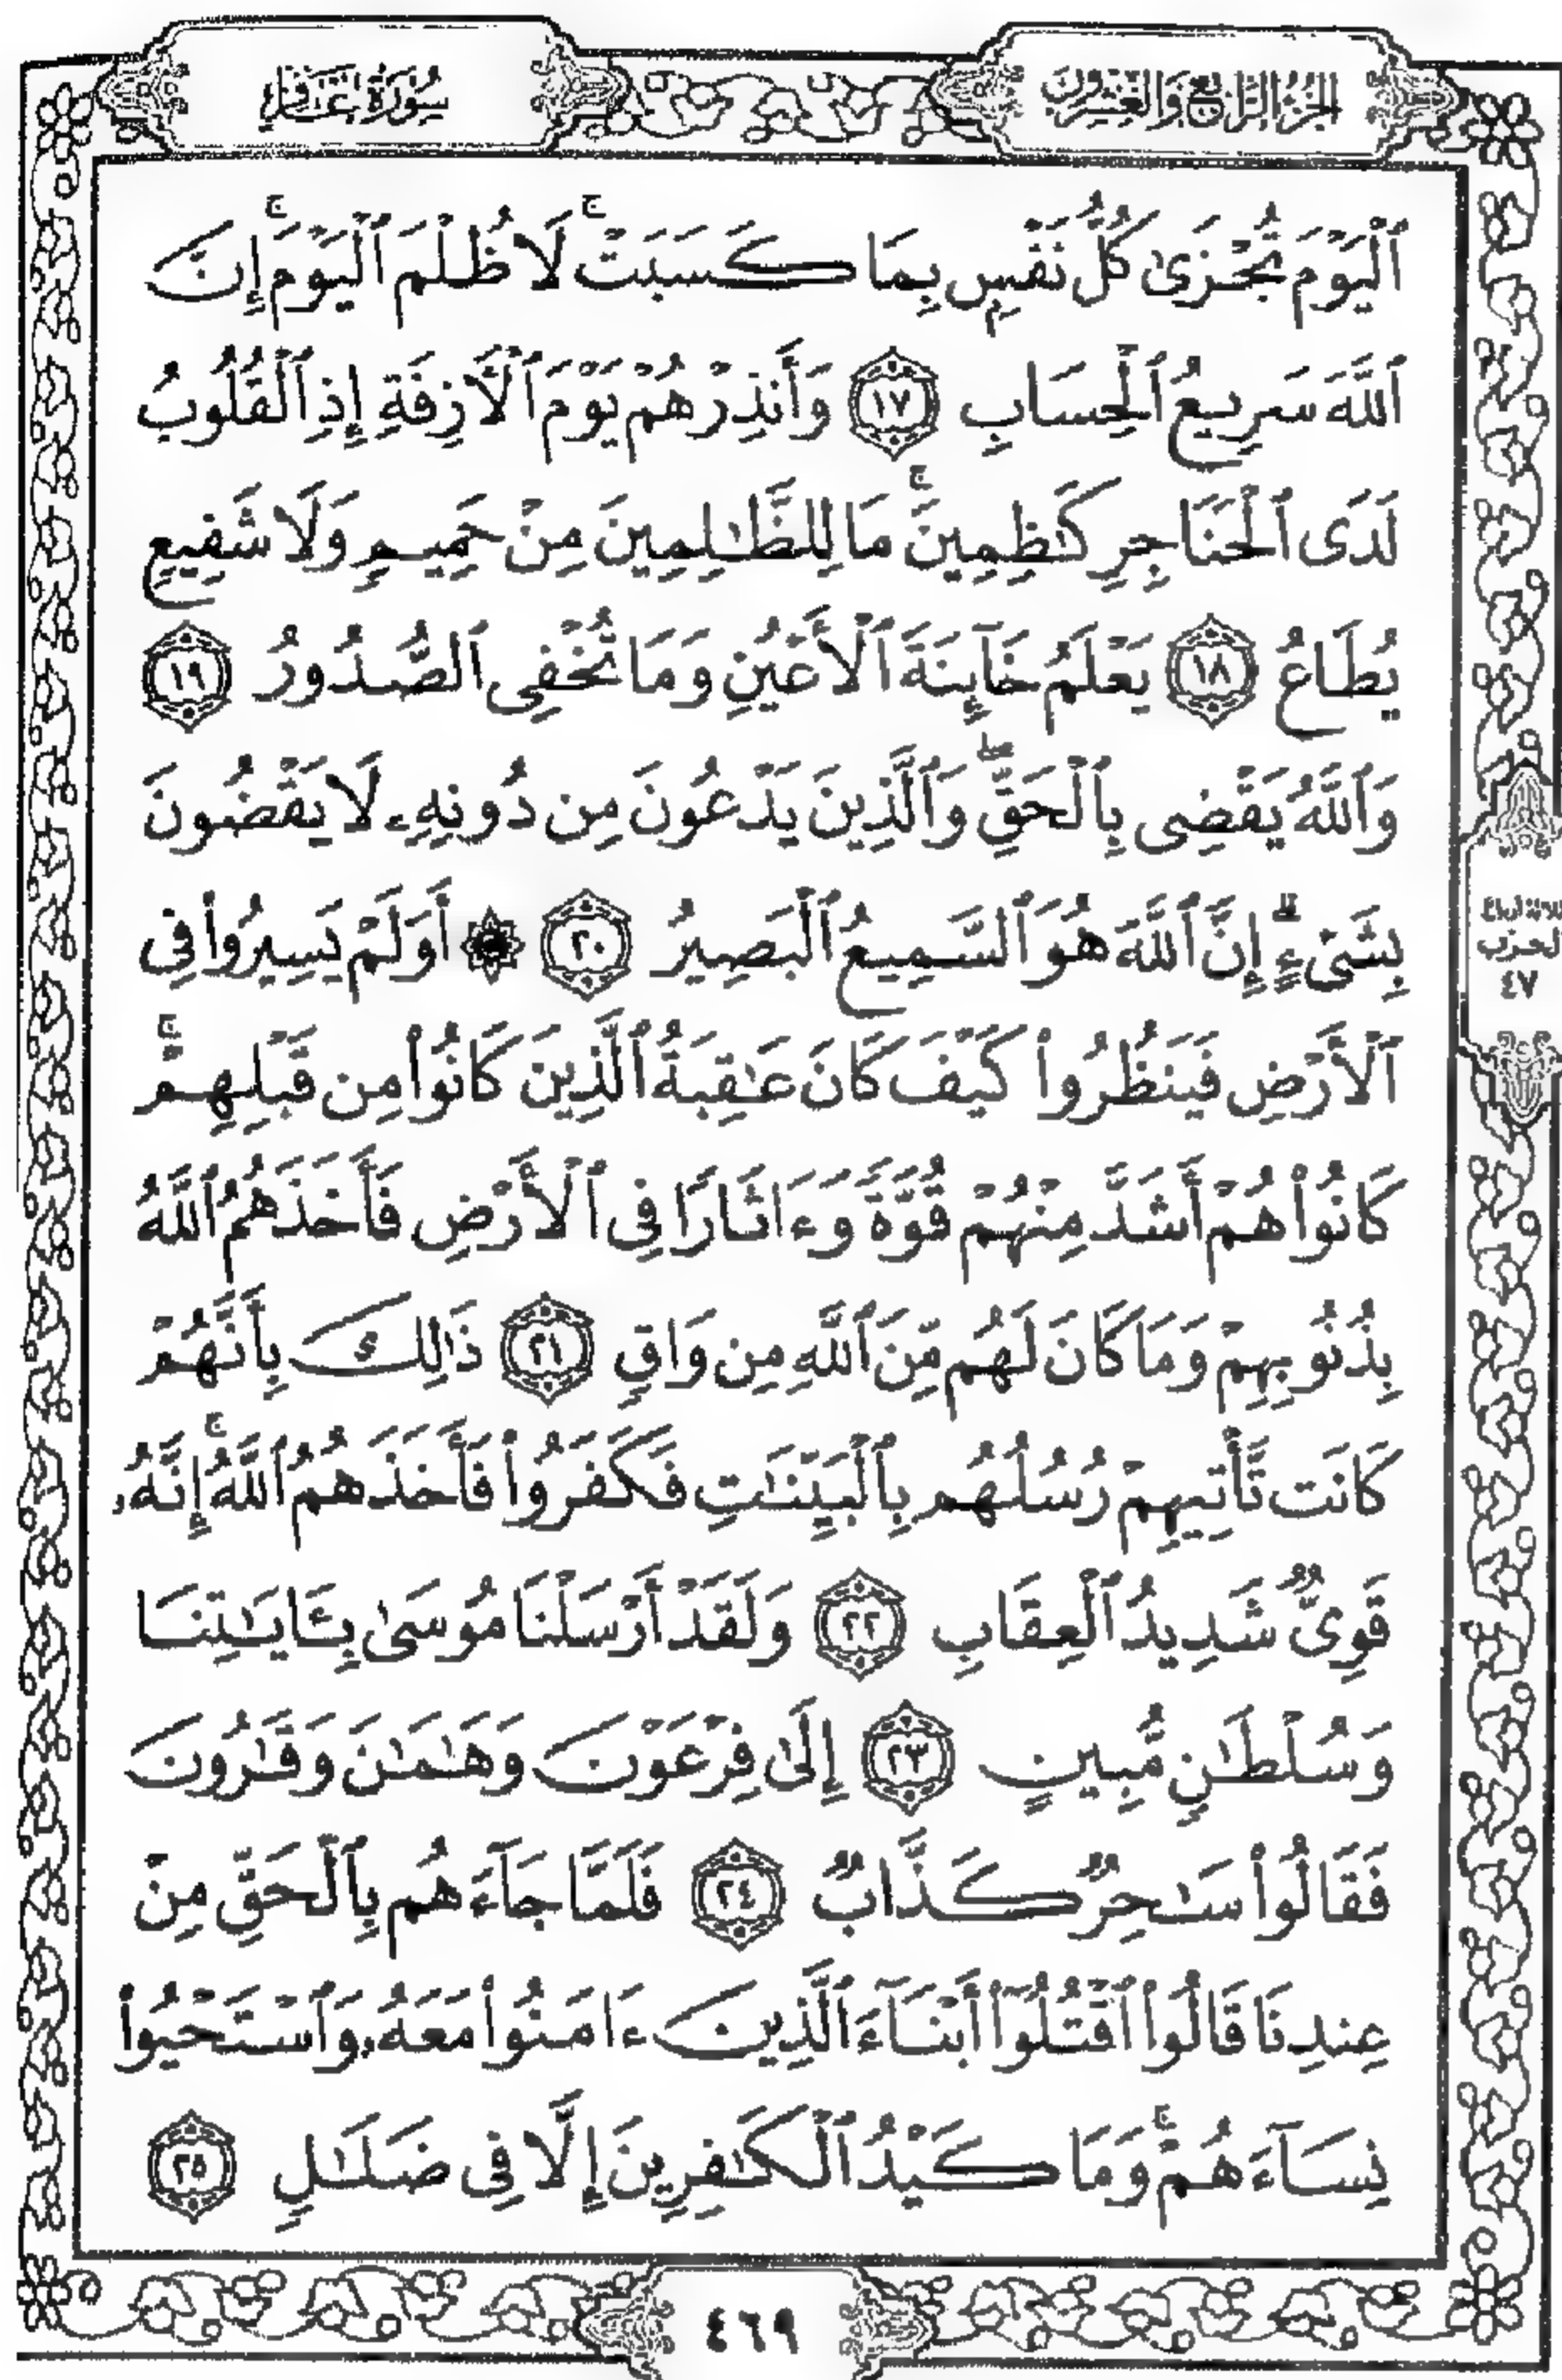 الجزء الرابع والعشرون
سورة غافر
ٱلْيَوْمَ تُجْزَىٰ كُلُّ نَفْسٍۭ بِمَا كَسَبَتْ ۚ لَا ظُلْمَ ٱلْيَوْمَ ۚ إِنَّ
ٱللَّهَ سَرِيعُ ٱلْحِسَابِ ١٧ وَأَنذِرْهُمْ يَوْمَ ٱلْأَزِفَةِ إِذِ ٱلْقُلُوبُ
لَدَى ٱلْحَنَاجِرِ كَٰظِمِينَ ۚ مَا لِلظَّٰلِمِينَ مِنْ حَمِيمٍ وَلَا شَفِيعٍ
يُطَاعُ ١٨ يَعْلَمُ خَآئِنَةَ ٱلْأَعْيُنِ وَمَا تُخْفِى ٱلصُّدُورُ ١٩
وَٱللَّهُ يَقْضِى بِٱلْحَقِّ ۖ وَٱلَّذِينَ يَدْعُونَ مِن دُونِهِۦ لَا يَقْضُونَ
بِشَىْءٍ ۗ إِنَّ ٱللَّهَ هُوَ ٱلسَّمِيعُ ٱلْبَصِيرُ ٢٠ ۞ أَوَلَمْ يَسِيرُوا۟ فِى
ٱلْأَرْضِ فَيَنظُرُوا۟ كَيْفَ كَانَ عَٰقِبَةُ ٱلَّذِينَ كَانُوا۟ مِن قَبْلِهِمْ ۚ
كَانُوا۟ هُمْ أَشَدَّ مِنْهُمْ قُوَّةً وَءَاثَارًا فِى ٱلْأَرْضِ فَأَخَذَهُمُ ٱللَّهُ
بِذُنُوبِهِمْ وَمَا كَانَ لَهُم مِّنَ ٱللَّهِ مِن وَاقٍ ٢١ ذَٰلِكَ بِأَنَّهُمْ
كَانَت تَّأْتِيهِمْ رُسُلُهُم بِٱلْبَيِّنَٰتِ فَكَفَرُوا۟ فَأَخَذَهُمُ ٱللَّهُ ۚ إِنَّهُۥ
قَوِىٌّ شَدِيدُ ٱلْعِقَابِ ٢٢ وَلَقَدْ أَرْسَلْنَا مُوسَىٰ بِـَٔايَٰتِنَا
وَسُلْطَٰنٍ مُّبِينٍ ٢٣ إِلَىٰ فِرْعَوْنَ وَهَٰمَٰنَ وَقَٰرُونَ
فَقَالُوا۟ سَٰحِرٌ كَذَّابٌ ٢٤ فَلَمَّا جَآءَهُم بِٱلْحَقِّ مِنْ
عِندِنَا قَالُوا۟ ٱقْتُلُوٓا۟ أَبْنَآءَ ٱلَّذِينَ ءَامَنُوا۟ مَعَهُۥ وَٱسْتَحْيُوا۟
نِسَآءَهُمْ ۚ وَمَا كَيْدُ ٱلْكَٰفِرِينَ إِلَّا فِى ضَلَٰلٍ ٢٥
ثلاثة أرباع
الحزب
٤٧
٤٦٩